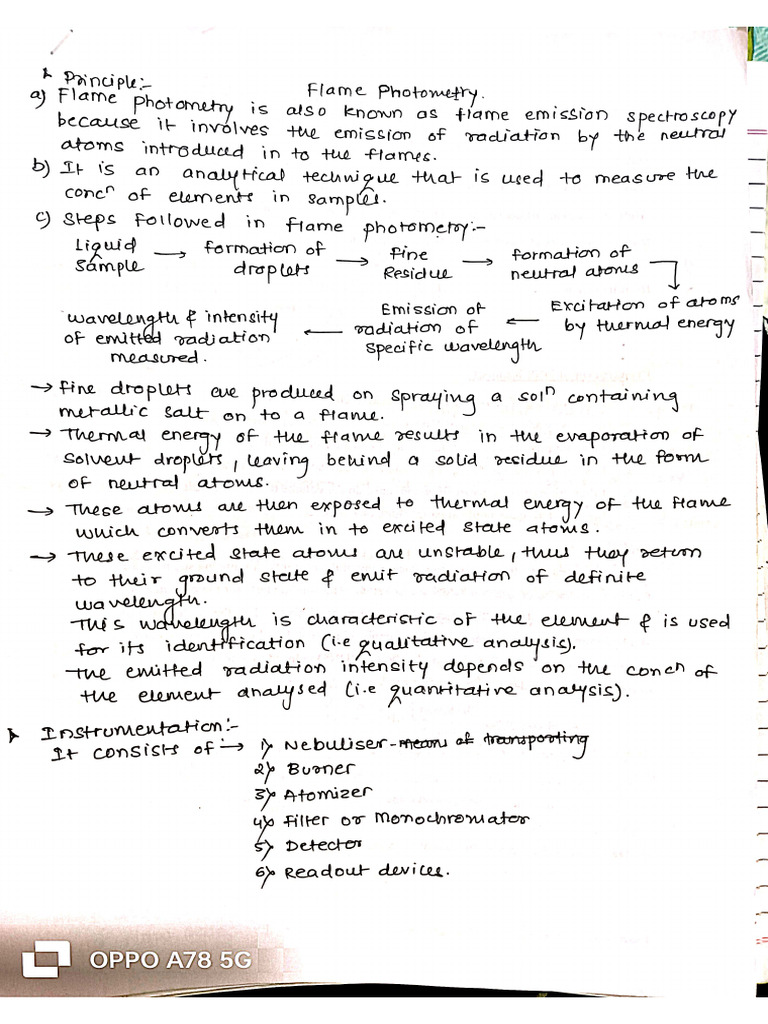 Flame Photometry.
* Principle:-
a) Flame Photometry is also known as flame emission spectroscopy
because it involves the emission of radiation by the neutral
atoms introduced in to the flames.
b) It is an analytical technique that is used to measure the
concn of elements in samples.
c) Steps followed in flame photometry:-
Liquid Sample → formation of droplets → fine Residue → formation of neutral atoms
Excitation of atoms by thermal energy ← Emission of radiation of specific wavelength ← wavelength & intensity of emitted radiation measured.
→ fine droplets are produced on spraying a soln containing
metallic salt on to a flame.
→ Thermal energy of the flame results in the evaporation of
solvent droplets, leaving behind a solid residue in the form
of neutral atoms.
→ These atoms are then exposed to thermal energy of the flame
which converts them in to excited state atoms.
→ These excited state atoms are unstable, thus they return
to their ground state & emit radiation of definite
wavelength.
This wavelength is characteristic of the element & is used
for its identification (i.e qualitative analysis).
The emitted radiation intensity depends on the concn of
the element analysed (i.e quantitative analysis).
Instrumentation:-
It consists of → 1) Nebuliser - means of transporting
2) Burner
3) Atomizer
4) Filter or Monochromator
5) Detector
6) Readout devices.
OPPO A78 5G